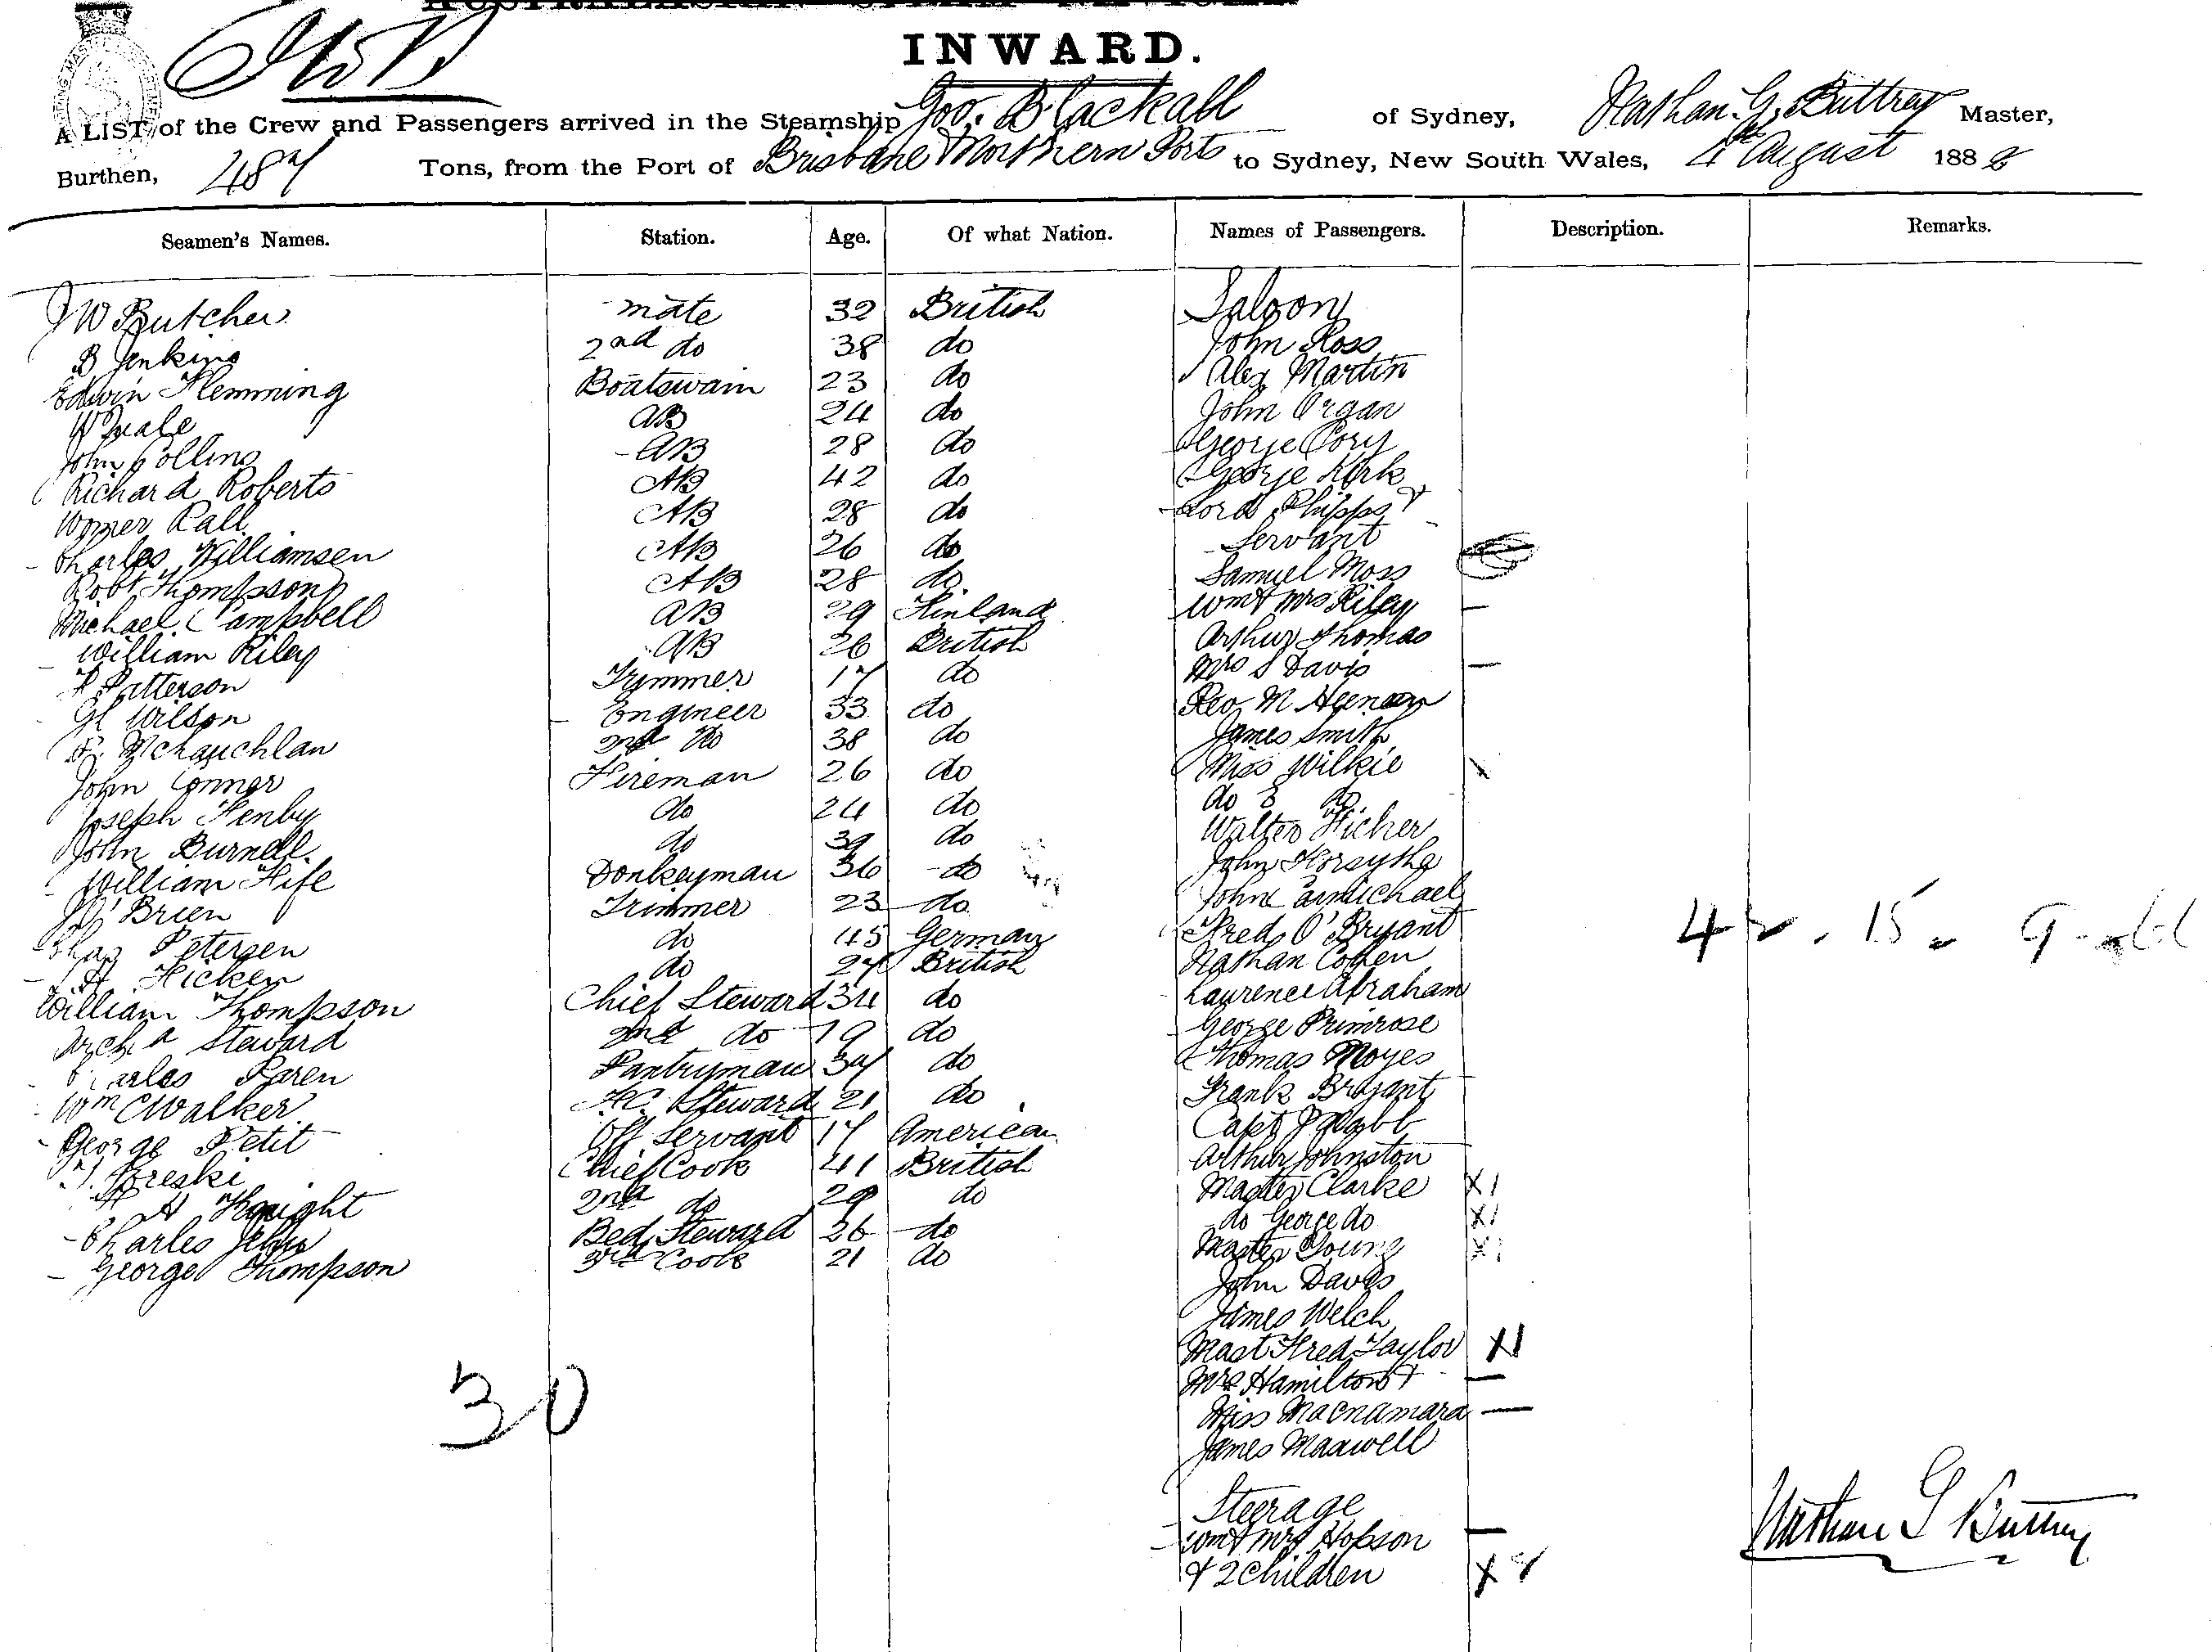 INWARD.
A LIST of the Crew and Passengers arrived in the Steamship Gov. Blackall of Sydney, Nathan. G. Buttrey Master,
Burthen, 487 Tons, from the Port of Brisbane Northern Ports to Sydney, New South Wales, 4th August 1882
Seamen's Names. Station. Age. Of what Nation. Names of Passengers. Description. Remarks.
J W Butcher mate 32 British Saloon
B Jenkins 2nd do 38 do John Ross
Edwin Flemming Boatswain 23 do Alex Martin
W Quale AB 24 do John Organ
John Collins AB 28 do George Cory
Richard Roberts AB 42 do George Kirk
Rall AB 28 do Lord Phipps &
Charles Williamsen AB 26 do Servant
Robt Thompson AB 28 do Samuel Moss
Michael Campbell AB 29 Finland Wm & Mrs Riley
William Riley AB 26 British Arthur Thomas
Patterson Trymmer 17 do Mrs S Davis
G Wilson Engineer 33 do Rev M Heenan
McLauchlan 2nd do 38 do James Smith
John Connor Fireman 26 do Miss Wilkie
Joseph Henby do 24 do do do
John Burnell do 39 do Walter Hicher
William Fife Donkeyman 36 do John Forsythe
O'Brien Trimmer 23 do John Carmichael
Chas Petersen do 45 German Fred O'Bryant
Hicken do 27 British Nathan Cohen
William Thompson Chief Steward 34 do Laurence Abraham
Archd Steward 2nd do 19 do George Primrose
Charles Paren Pantryman 37 do Thomas Moyes
Wm C Walker F.C. Steward 21 do Frank Bryant
George Petit Off Servant 17 American Capt
T. Poreski Chief Cook 41 British Arthur Johnston
A Knight 2nd do 29 do Master Clarke X1
Charles Bed Steward 26 do do George do X1
George Thompson 3rd Cook 21 do Master Young X1
John Davis
James Welch
Mast Fred Taylor X1
Mrs Hamilton &
Miss Macnamara
James Maxwell
30
Steerage
Wm & Mrs Hobson
& 2 Children X
Nathan G Buttrey